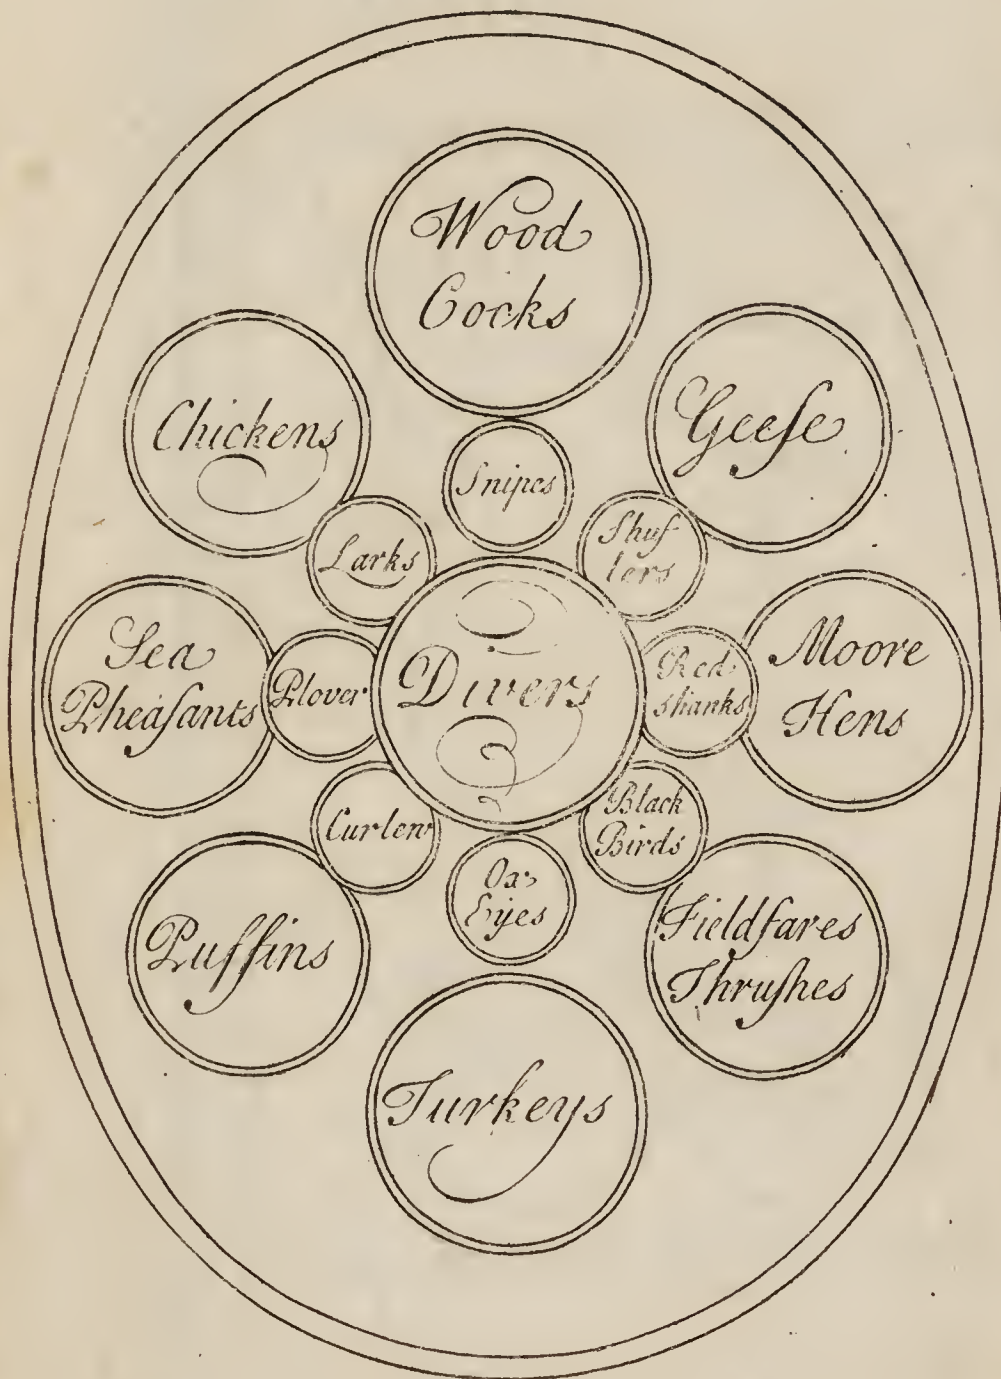 Wood
Cocks
Chickens
Geeſe
Snipes
Larks
Shuf
lers
Sea
Pheaſants
Plover
Divers
Red
shanks
Moore
Hens
Curlew
Ox
Eyes
Black
Birds
Puffins
Fieldfares
Thruſhes
Turkeys